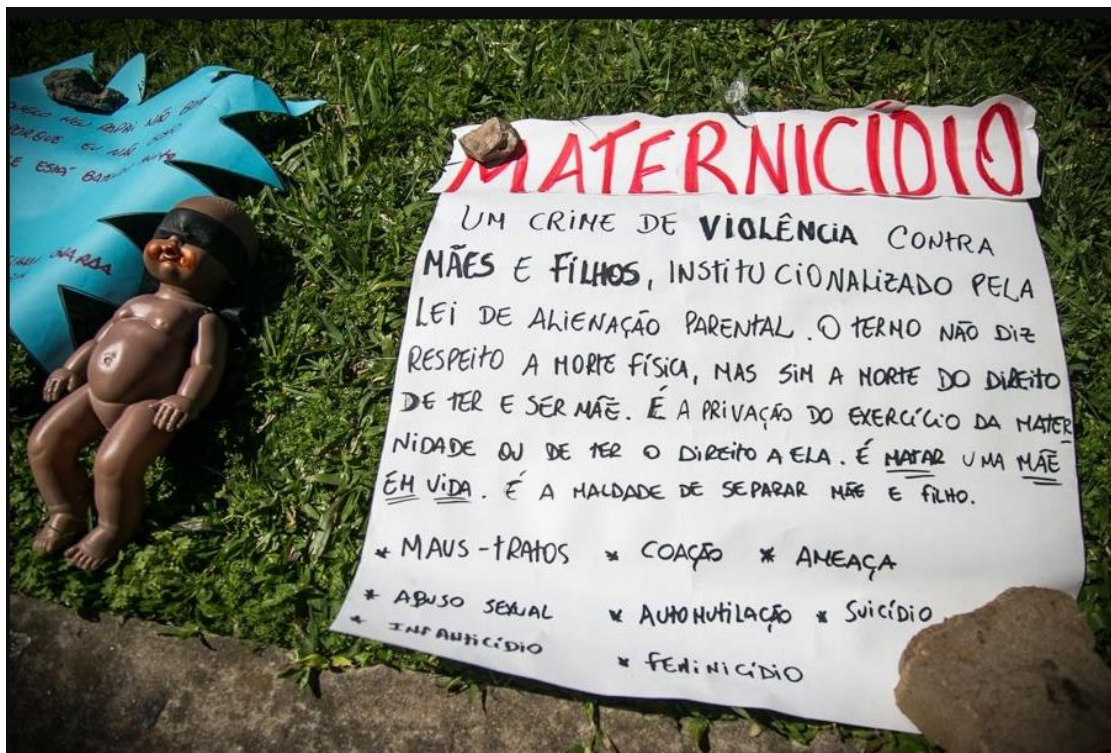 MEU PAPAI NÃO
PORQUE EU NÃO
MATERNICÍDIO
UM CRIME DE VIOLÊNCIA CONTRA
MÃES E FILHOS, INSTITUCIONALIZADO PELA
LEI DE ALIENAÇÃO PARENTAL. O TERMO NÃO DIZ
RESPEITO A MORTE FÍSICA, MAS SIM A MORTE DO DIREITO
DE TER E SER MÃE. É A PRIVAÇÃO DO EXERCÍCIO DA MATER
NIDADE OU DE TER O DIREITO A ELA. É MATAR UMA MÃE
EM VIDA. É A MALDADE DE SEPARAR MÃE E FILHO.
* MAUS-TRATOS * COAÇÃO * AMEAÇA
* ABUSO SEXUAL * AUTOMUTILAÇÃO * SUICÍDIO
* INFANTICÍDIO * FEMINICÍDIO